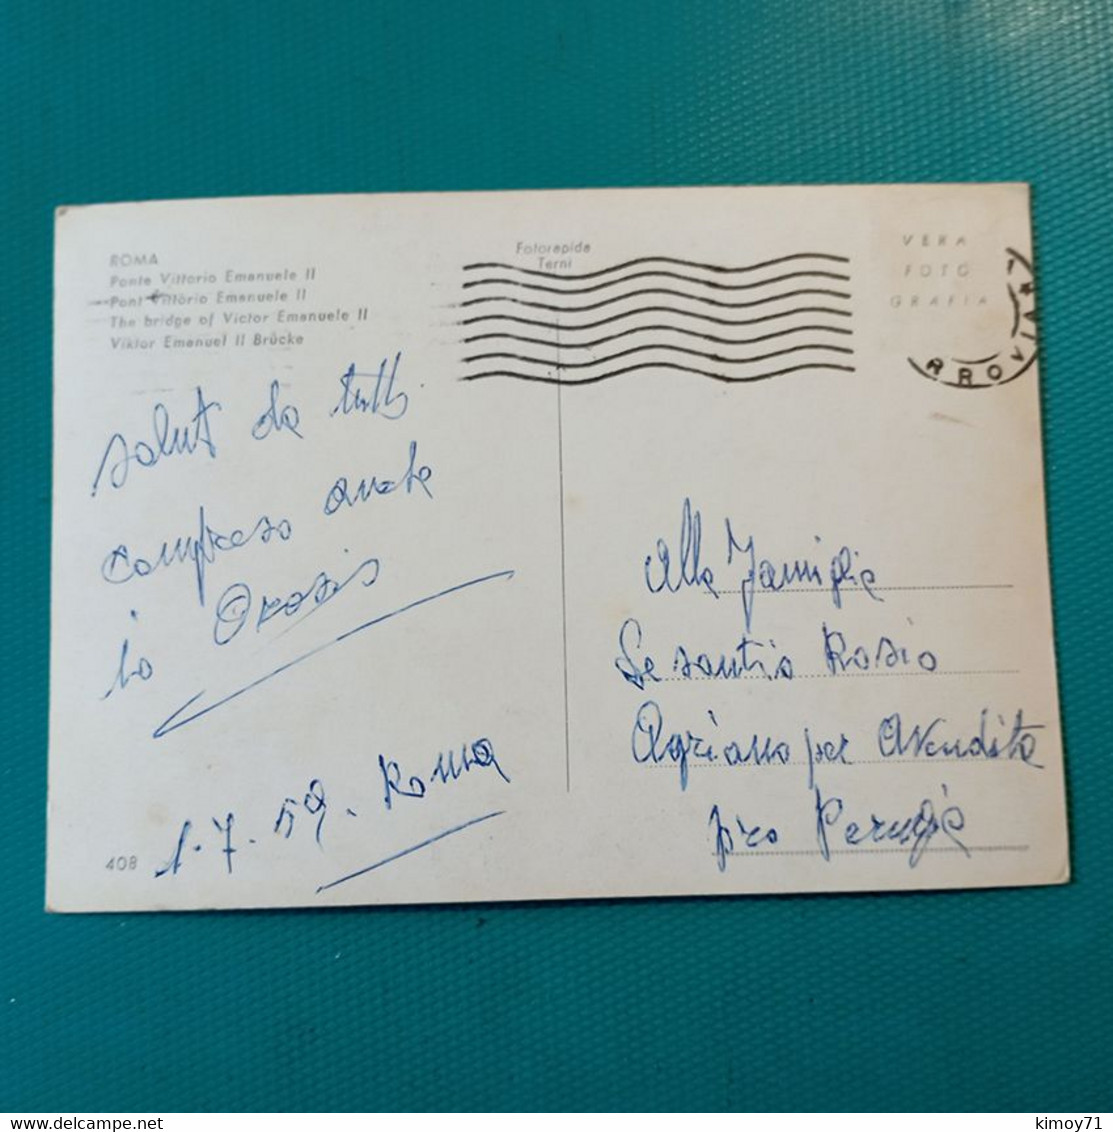 ROMA
Ponte Vittorio Emanuele II
Pont Vittorio Emanuele II
The bridge of Victor Emanuele II
Viktor Emanuel II Brücke
Fotorapida
Terni
VERA
FOTO
GRAFIA
RROVIA
saluti da tutti
compreso anche
io
1.7.59. Roma
408
Alla Famiglia
De santis Rosio
Agriano per Avendita
pro Perugia
kimoy71